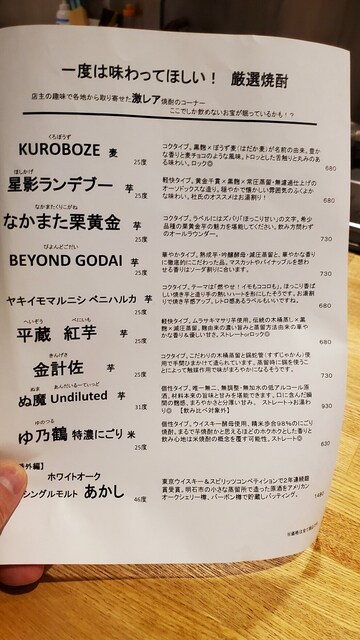 一度は味わってほしい！ 厳選焼酎
店主の趣味で各地から取り寄せた激レア焼酎のコーナー
ここでしか飲めないお宝が眠っているかも！？
くろぼうず
KUROBOZE 麦 25度
コクタイプ。黒麹×ぼうず麦(はだか麦)が名前の由来。豊か
な香りと麦チョコのような風味。トロッとした舌触りと丸みのあ
る味わい。ロック◎
680
ほしかげ
星影ランデブー 芋 25度
軽快タイプ。黄金千貫×黒麹×常圧蒸留・無濾過仕上げの
オーソドックスな造り。穏やかで懐かしい雰囲気のふくよか
な味わい。杜氏のオススメはお湯割り！
680
なかまたくりこがね
なかまた栗黄金 芋 25度
コクタイプ。ラベルにはズバリ「ほっこり甘い」の文字。希少
品種の栗黄金芋の魅力を堪能してください。飲み方問わず
のオールラウンダー。
730
びよんどごだい
BEYOND GODAI 芋 25度
華やかタイプ。熟成芋・吟醸酵母・減圧蒸留と、華やかな香り
に徹底的にこだわった品。マスカットやパイナップルを想わ
せる香りはソーダ割りに合います。
730
ヤキイモマルニシ ベニハルカ 芋 25度
コクタイプ。テーマは「燃やせ！イモもココロも」。ほっこり香ば
しい焼き芋と造り手の熱いハートをお楽しみください。お湯割
りで焼き芋感アップ。レトロ感あるラベルもいいですね。
730
へいぞう べにいも
平蔵 紅芋 芋 25度
軽快タイプ。ムラサキマサリ芋使用。伝統の木桶蒸し×黒
麹×減圧蒸留。麹由来の濃い旨みと蒸留方法由来の華や
かな香り＆優しい甘さ。ストレートorロック◎
680
きんげさ
金計佐 芋 25度
コクタイプ。こだわりの木桶蒸留と錫蛇管(すずじゃかん)使
用で手間ひまかけて造られています。蒸留時に錫を使うこ
とによって触媒作用で味がまろやかになるそうです。
730
ぬま あんだいるーてぃっど
ぬ魔 Undiluted 芋 31度
個性タイプ。唯一無二、無調整・無加水の低アルコール原
酒。材料本来の旨味と甘みを堪能できます。口に含んだ瞬
間の艶感、まろやかさと分厚い甘み。 ストレート→お湯わ
り◎ 【飲み比べ対象外】
930
ゆのつる
ゆ乃鶴 特濃にごり 米 25度
個性タイプ。ウイスキー酵母使用、精米歩合98%のにごり
焼酎。まるで芋焼酎かと思えるほどのホクホクとした香りと
飲み心地は米焼酎の概念を覆す可能性。ストレート◎
630
外編】
ホワイトオーク
シングルモルト あかし 46度
東京ウイスキー＆スピリッツコンペティションで2年連続銀
賞受賞。明石市の小さな蒸留所で造った原酒をアメリカン
オークシェリー樽、バーボン樽で貯蔵しバッティング。
1480